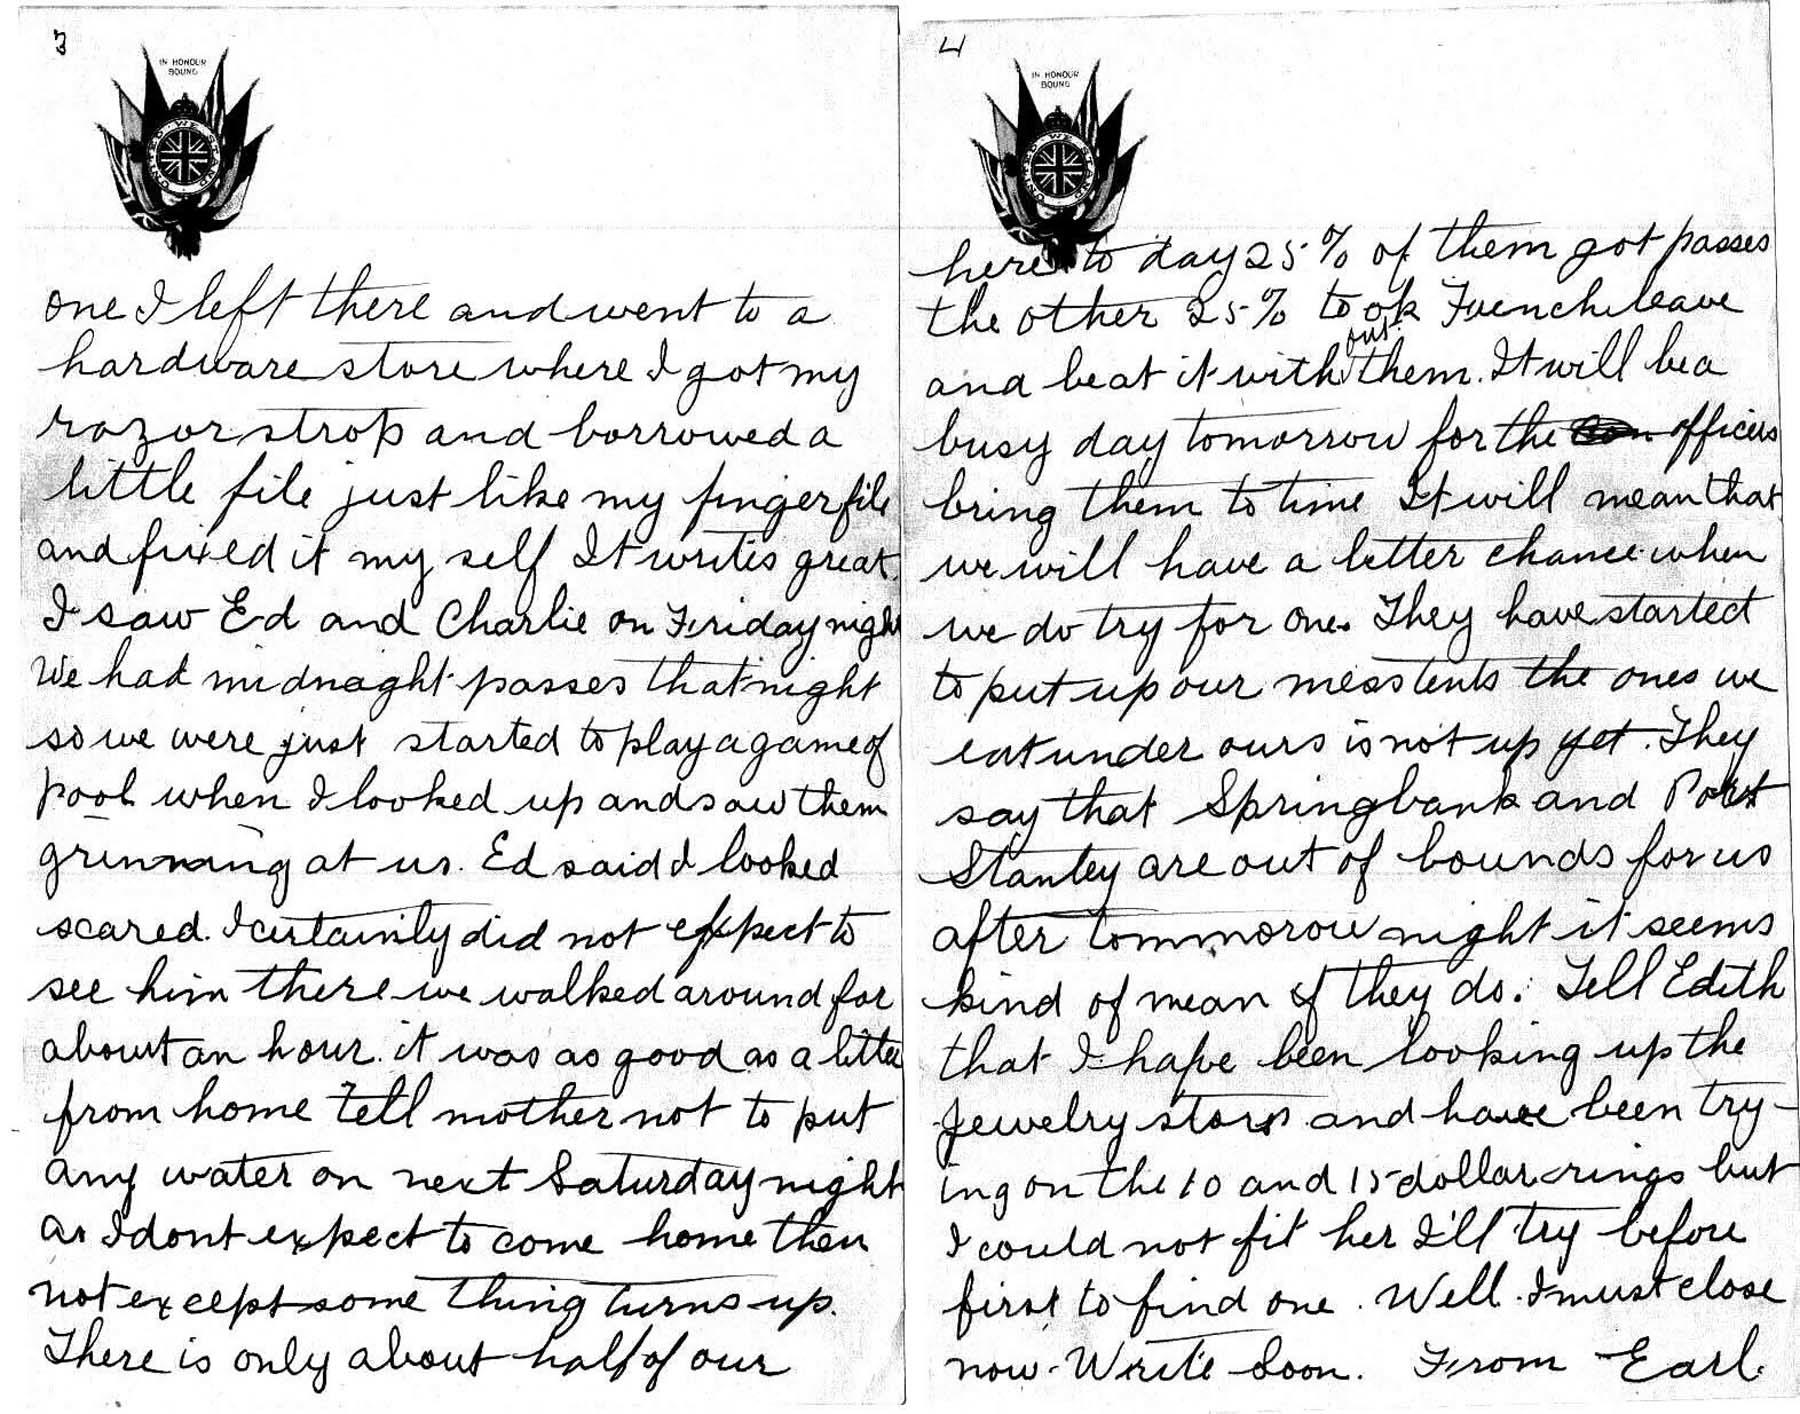 3
IN HONOUR
BOUND
UNITED WE STAND
one I left there and went to a
hardware store where I got my
razor strop and borrowed a
little file just like my fingerfile
and fixed it my self It writes great.
I saw Ed and Charlie on Friday night
We had midnaght passes that night
so we were just started to play a game of
pool when I looked up and saw them
grinning at us. Ed said I looked
scared. I certainly did not expect to
see him there we walked around for
about an hour. it was as good as a letter
from home Tell mother not to put
any water on next Saturday night
as I dont expect to come home then
not except some thing turns up.
There is only about half of our
4
IN HONOUR
BOUND
UNITED WE STAND
here to day 25% of them got passes
the other 25% took French leave
and beat it with out them. It will be a
busy day tomorrow for the officers
bring them to time It will mean that
we will have a better chance when
we do try for one. They have started
to put up our mess tents the ones we
eat under ours is not up yet. They
say that Springbank and Port
Stanley are out of bounds for us
after tommorow night it seems
kind of mean if they do. Tell Edith
that I have been looking up the
Jewelry stors and have been try-
ing on the 10 and 15 dollar rings but
I could not fit her I'll try before
first to find one. Well I must close
now. Write Soon. From Earl.